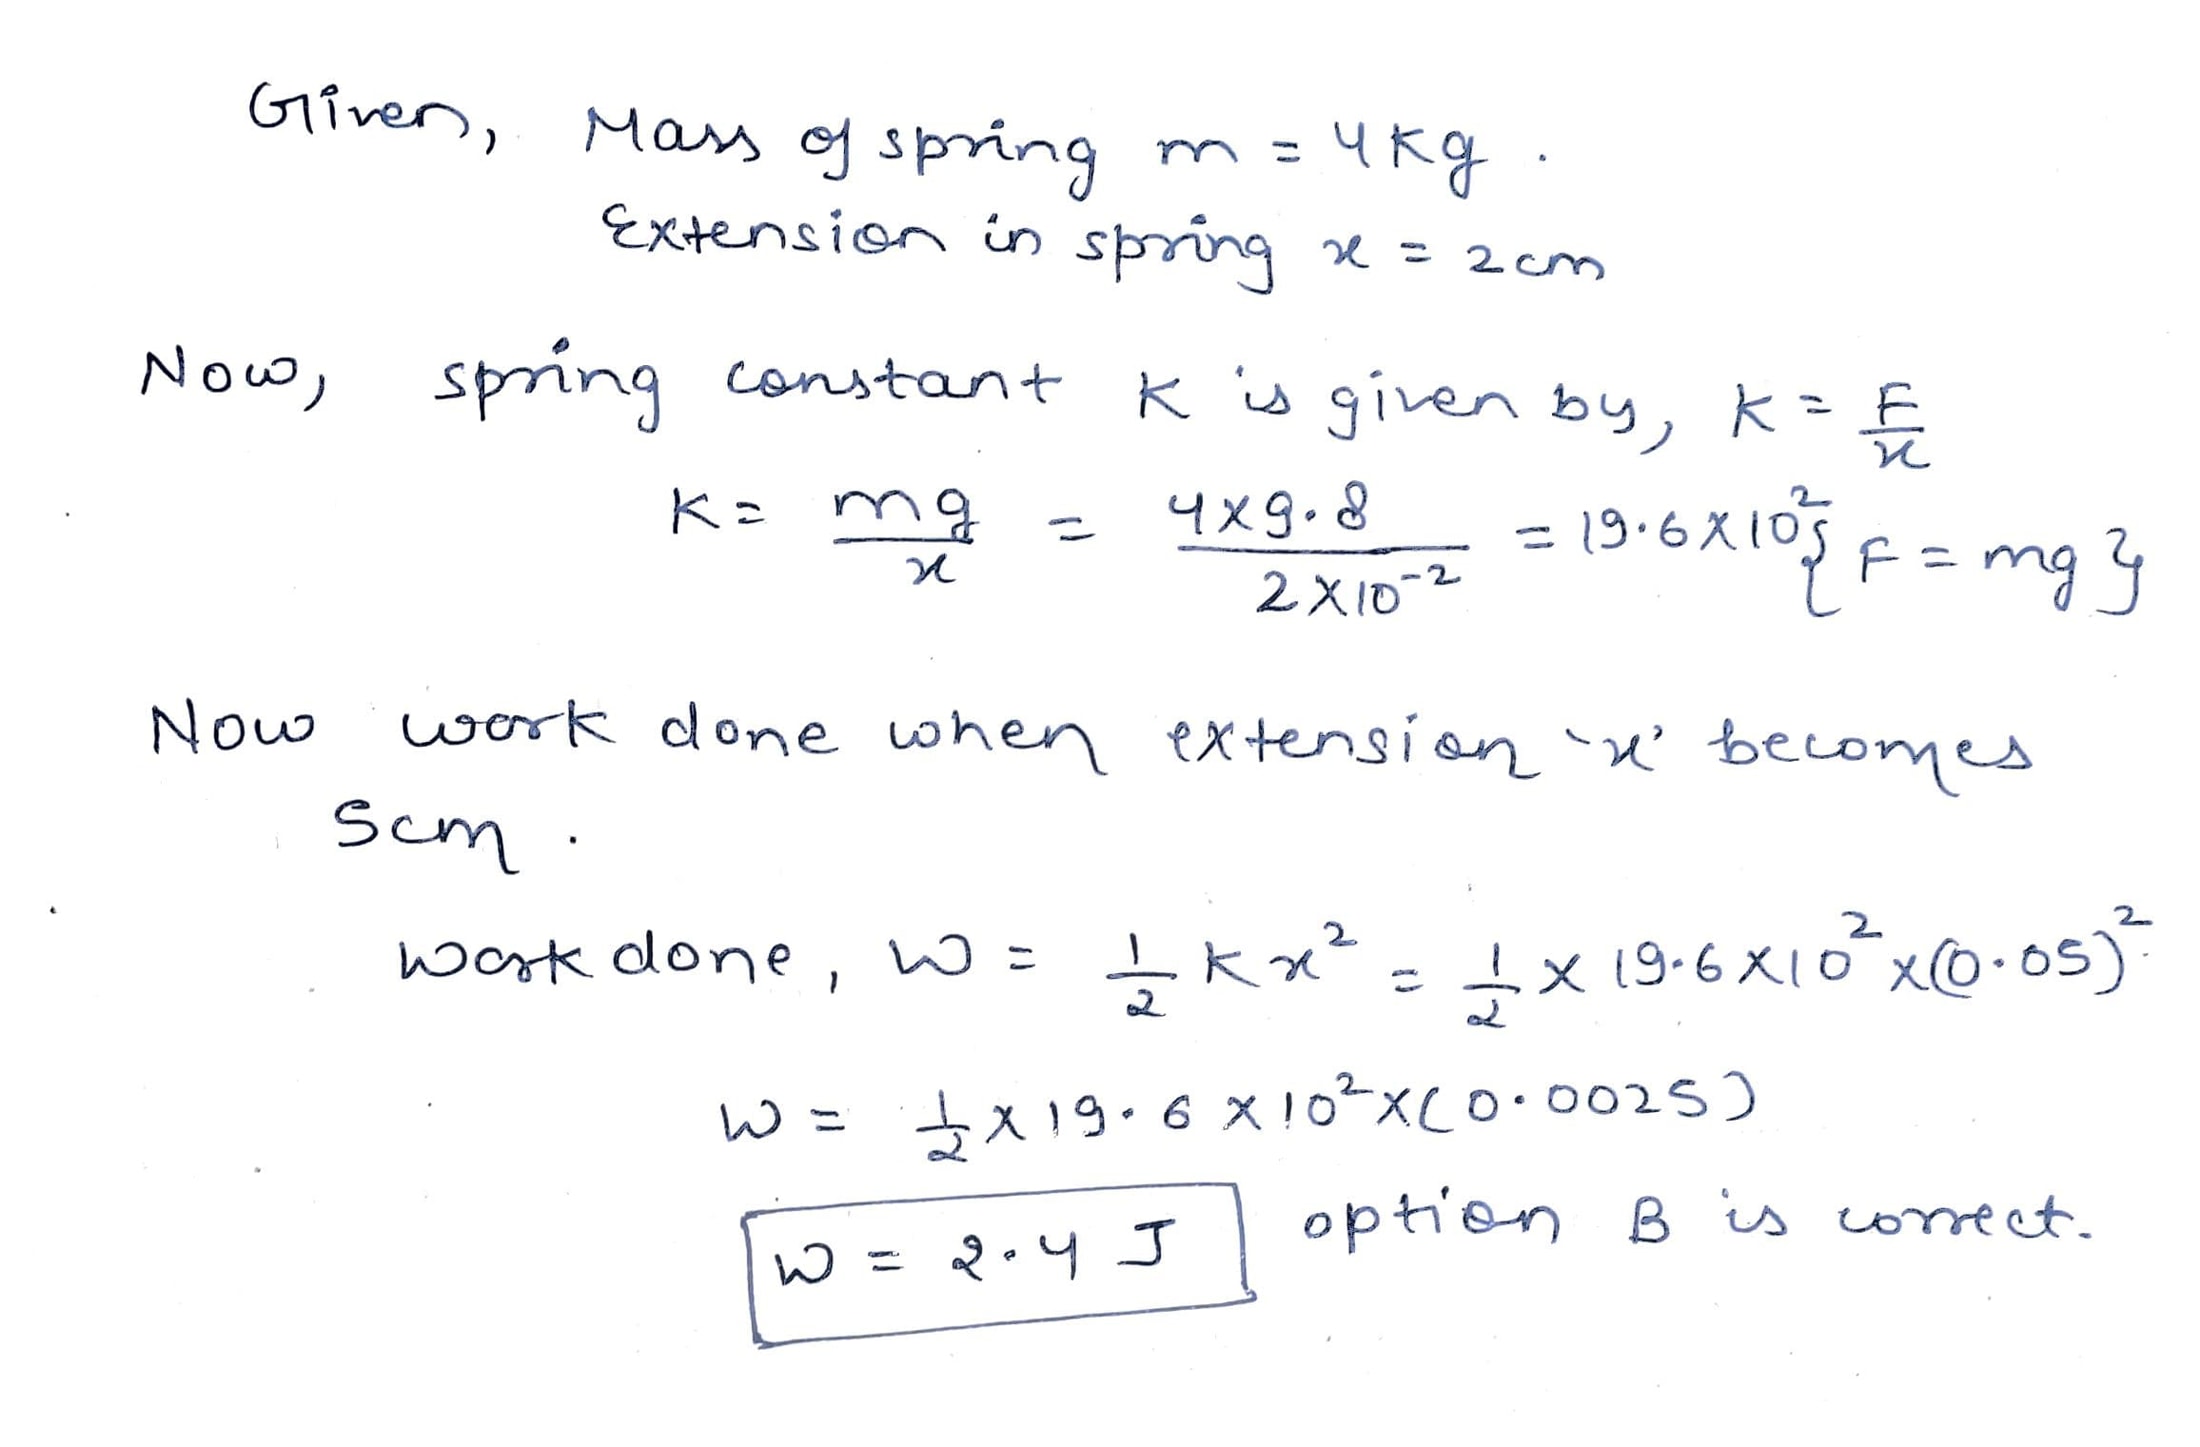 Given, Mass of spring m = 4 Kg .
Extension in spring x = 2 cm
Now, spring constant K is given by, K = F/x
K = mg/x = 4×9.8/2×10⁻² = 19.6×10² {F = mg}
Now work done when extension 'x' becomes
5cm .
Work done, W = 1/2 K x² = 1/2 × 19.6×10² ×(0.05)²
W = 1/2 × 19.6 ×10²×(0.0025)
W = 2.4 J option B is correct.